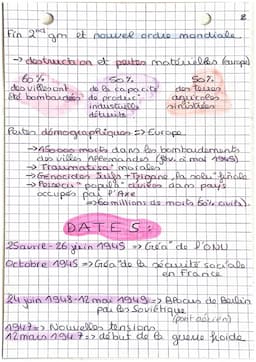 2
Fin 2nd gm et nouvel ordre mondiale
→ destruction et pertes matérielles (europe)
60% des villes ont été bombardées
50% de la capacité de produc° industrielle détruite
50% des terres agricoles sinistrées
Pertes démographiques => Europe
morts dans les bombardements
des villes Allemandes (fév. à mai 1945)
→ Traumatism morales
→ Génocides Juifs + Tziganes, la solu° finale
→ popula° civiles dans pays
occupés par l'Axe
=> 60 millions de morts civils).
DATES :
25 avril - 26 juin 1945 => Créa° de l'ONU
Octobre 1945 => Créa° de la sécurité sociale
en France
24 juin 1948 - 12 mai 1949 => Blocus de Berlin
par les Soviétiques
(pont aérien)
1947 => Nouvelles tensions
12 mars 1947 => début de la guerre froide